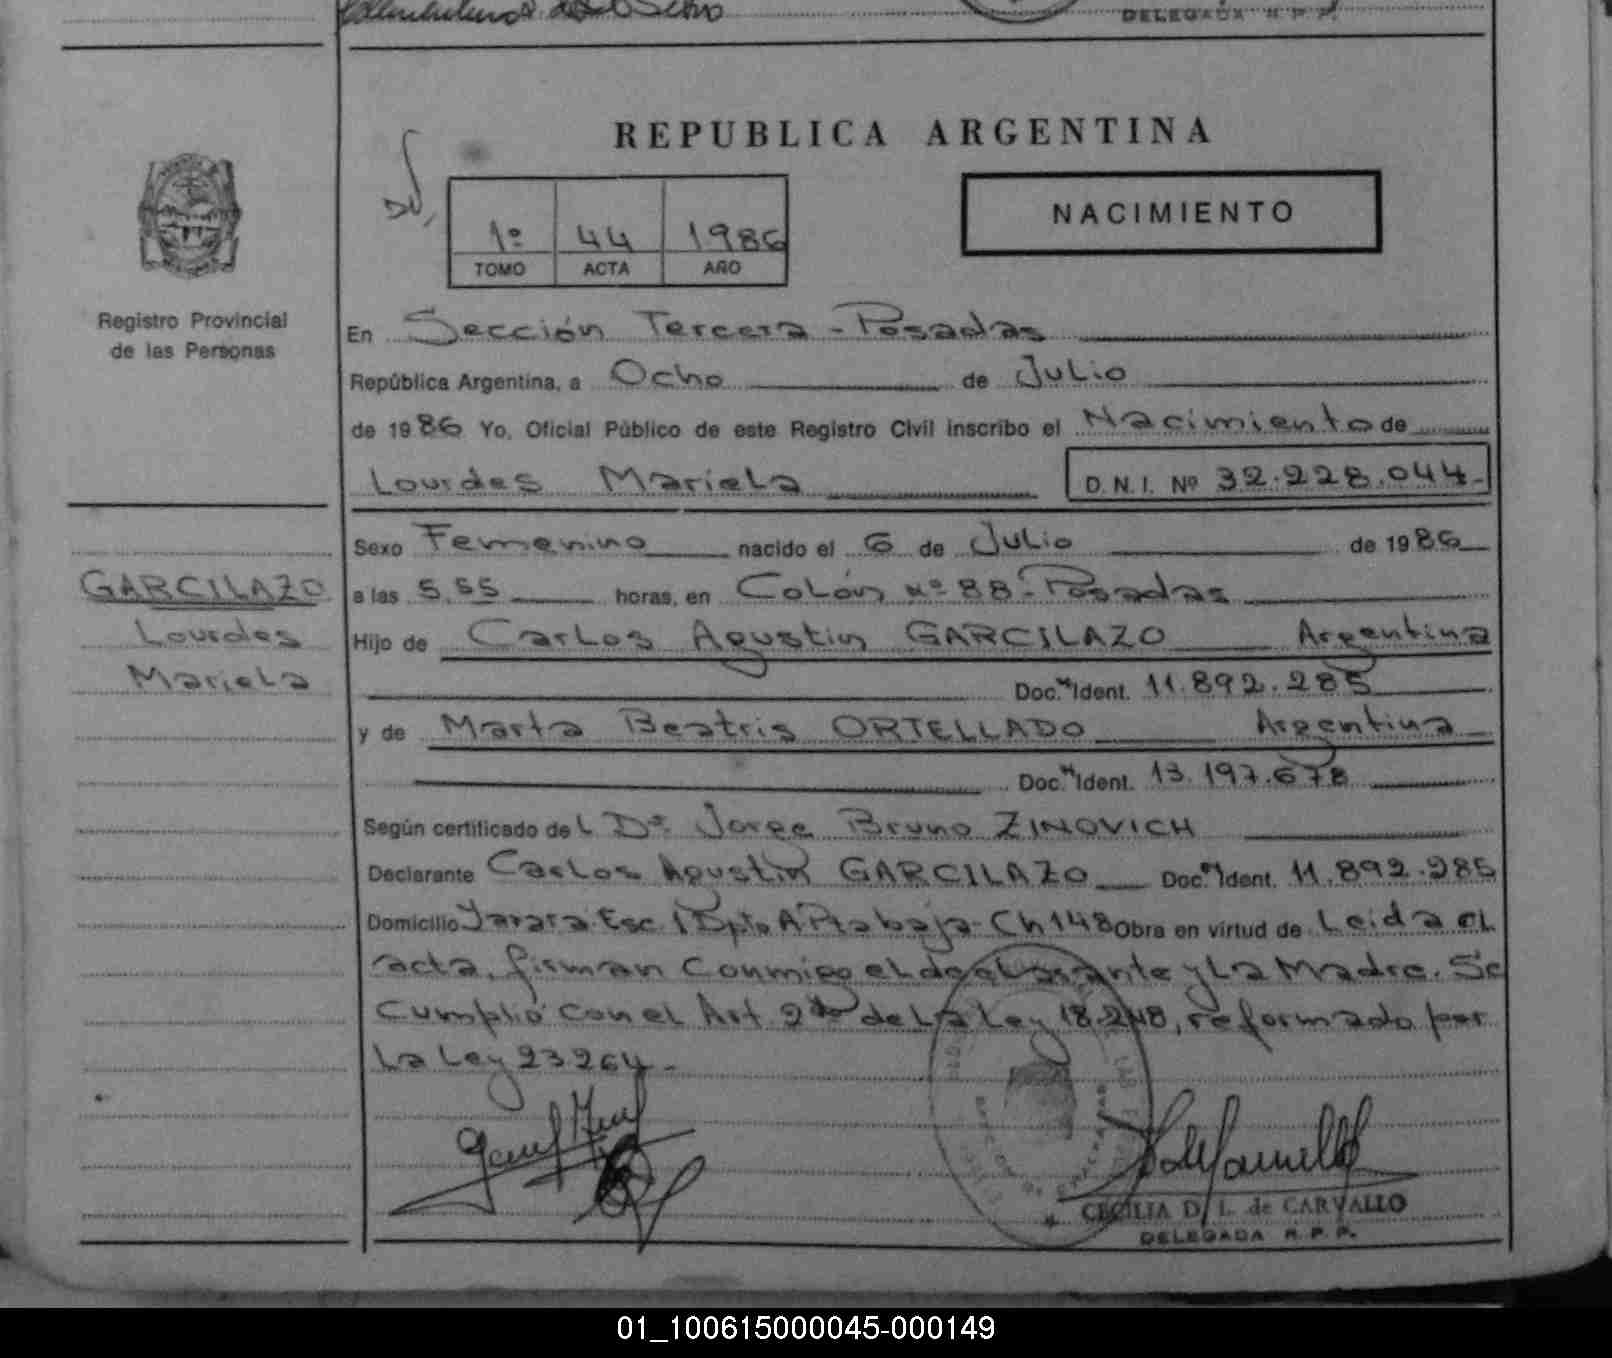 DELEGADA R.P.P.
REPUBLICA ARGENTINA
NACIMIENTO
1º 44 1986
TOMO ACTA AÑO
Registro Provincial
de las Personas
En Sección Tercera - Posadas
República Argentina, a Ocho de Julio
de 1986 Yo, Oficial Público de este Registro Civil inscribo el Nacimiento de
Lourdes Mariela D.N.I. Nº 32.228.044.-
Sexo Femenino nacido el 6 de Julio de 1986
GARCILAZO
Lourdes
Mariela
a las 5,55 horas, en Colón Nº 88 - Posadas
Hijo de Carlos Agustin GARCILAZO Argentina
Doc. Ident. 11.892.285
y de Marta Beatris ORTELLADO Argentina
Doc. Ident. 13.197.678
Según certificado del Dr. Jorge Bruno ZINOVICH
Declarante Carlos Agustin GARCILAZO Doc. Ident. 11.892.285
Domicilio Yarara Esc. 1 Dpto A Pta baja - Ch 148 Obra en virtud de Leida el
acta, firman conmigo el declarante y La Madre. Se
cumplió con el Art. 2do de La Ley 18.248, reformado por
La Ley 23264.-
CECILIA D. L. de CARVALLO
DELEGADA R.P.P.
01_100615000045-000149